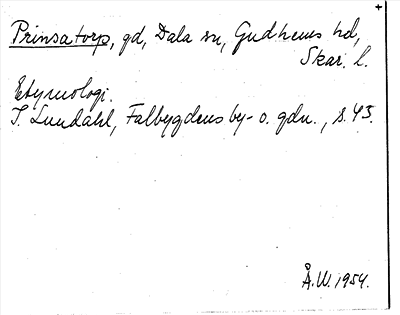 +
Prinsatorp, gd, Dala sn, Gudhems hd,
Skar. l.
Etymologi.
I. Lundahl, Falbygdens by- o. gdn., s. 43.
Å.W. 1954.